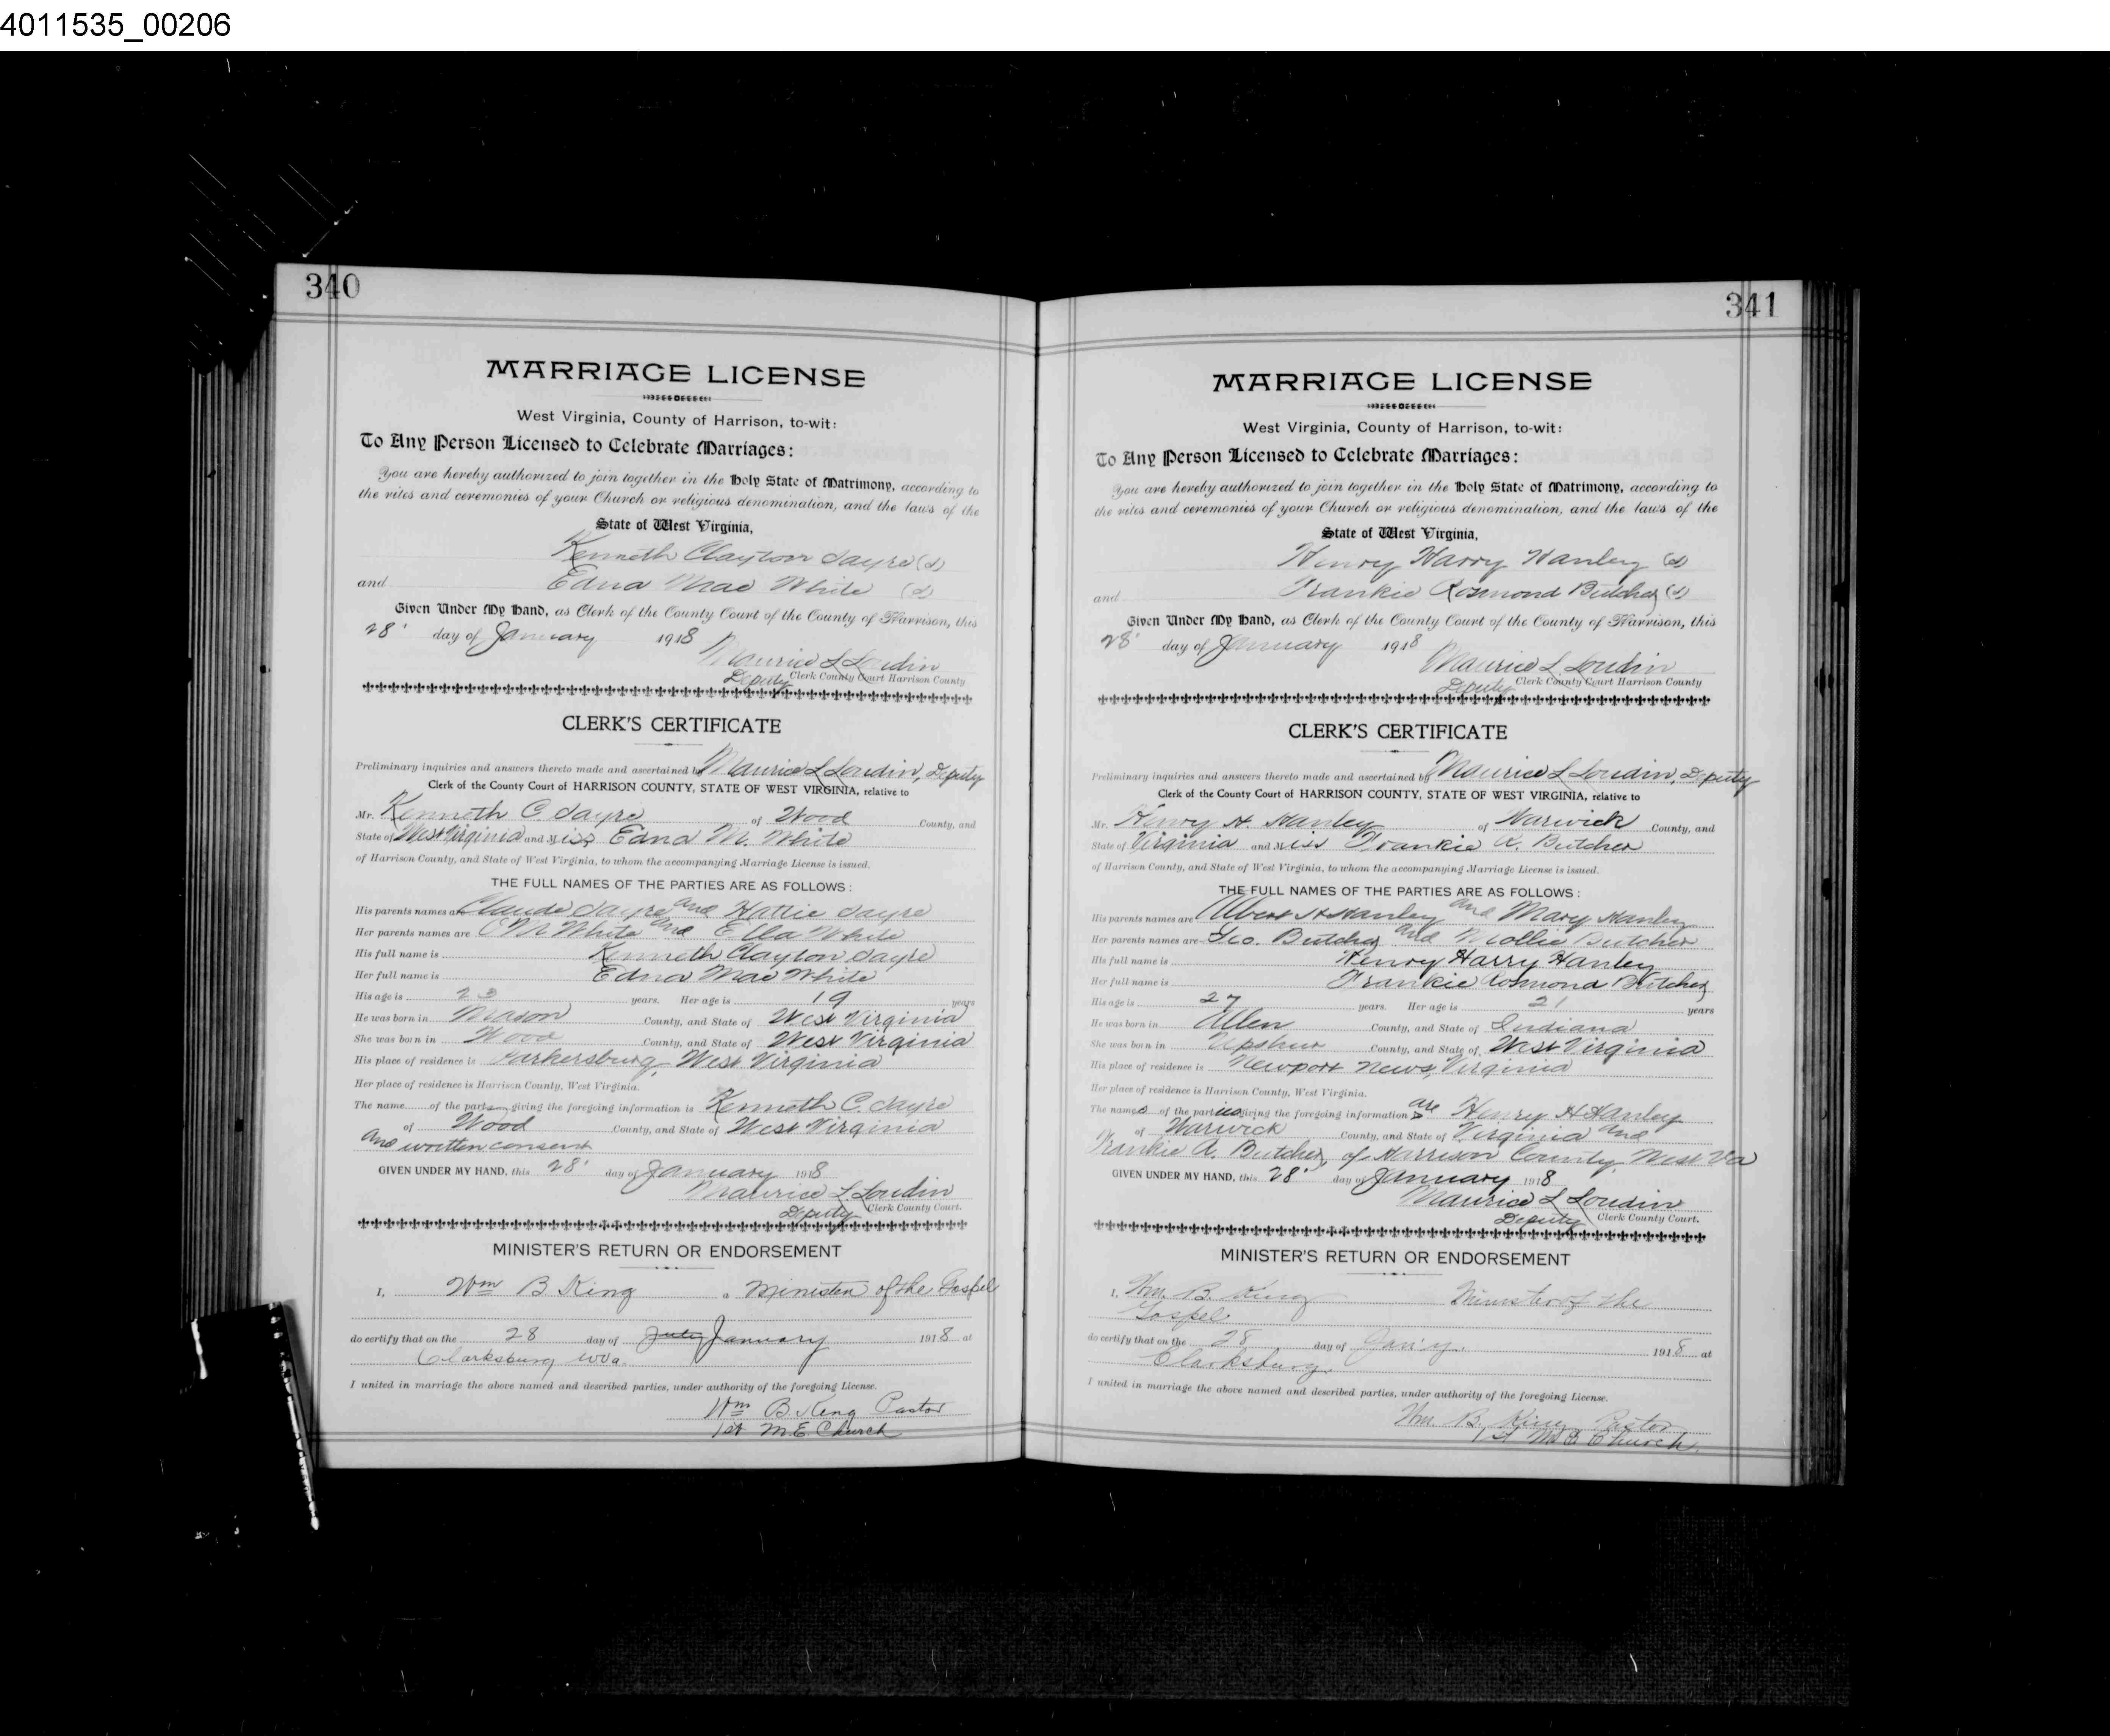 4011535_00206
340
MARRIAGE LICENSE
West Virginia, County of Harrison, to-wit:
To Any Person Licensed to Celebrate Marriages:
You are hereby authorized to join together in the Holy State of Matrimony, according to
the rites and ceremonies of your Church or religious denomination, and the laws of the
State of West Virginia,
Kenneth Clayton Sayre (s)
and Edna Mae White (s)
Given Under My Hand, as Clerk of the County Court of the County of Harrison, this
28' day of January 1918
Maurice L Loudin
Deputy Clerk County Court Harrison County
CLERK'S CERTIFICATE
Preliminary inquiries and answers thereto made and ascertained by Maurice L Loudin, Deputy
Clerk of the County Court of HARRISON COUNTY, STATE OF WEST VIRGINIA, relative to
Mr. Kenneth C Sayre of Wood County, and
State of West Virginia and Miss Edna M. White
of Harrison County, and State of West Virginia, to whom the accompanying Marriage License is issued.
THE FULL NAMES OF THE PARTIES ARE AS FOLLOWS:
His parents names are Claude Sayre and Hattie Sayre
Her parents names are C M White and Ella White
His full name is Kenneth Clayton Sayre
Her full name is Edna Mae White
His age is 23 years. Her age is 19 years
He was born in Mason County, and State of West Virginia
She was born in Wood County, and State of West Virginia
His place of residence is Parkersburg, West Virginia
Her place of residence is Harrison County, West Virginia.
The name of the party giving the foregoing information is Kenneth C. Sayre
of Wood County, and State of West Virginia
and written consent
GIVEN UNDER MY HAND, this 28' day of January 1918
Maurice L Loudin
Deputy Clerk County Court.
MINISTER'S RETURN OR ENDORSEMENT
I, Wm B King a Minister of the Gospel
do certify that on the 28 day of July January 1918 at
Clarksburg WVa.
I united in marriage the above named and described parties, under authority of the foregoing License.
Wm B King Pastor
1st M.E. Church
341
MARRIAGE LICENSE
West Virginia, County of Harrison, to-wit:
To Any Person Licensed to Celebrate Marriages:
You are hereby authorized to join together in the Holy State of Matrimony, according to
the rites and ceremonies of your Church or religious denomination, and the laws of the
State of West Virginia,
Henry Harry Hanley (s)
and Frankie Rosmond Butcher (s)
Given Under My Hand, as Clerk of the County Court of the County of Harrison, this
28' day of January 1918
Maurice L. Loudin
Deputy Clerk County Court Harrison County
CLERK'S CERTIFICATE
Preliminary inquiries and answers thereto made and ascertained by Maurice L Loudin, Deputy
Clerk of the County Court of HARRISON COUNTY, STATE OF WEST VIRGINIA, relative to
Mr. Henry H. Hanley of Warwick County, and
State of Virginia and Miss Frankie R. Butcher
of Harrison County, and State of West Virginia, to whom the accompanying Marriage License is issued.
THE FULL NAMES OF THE PARTIES ARE AS FOLLOWS:
His parents names are Albert H Hanley and Mary Hanley
Her parents names are Geo. Butcher and Mollie Butcher
His full name is Henry Harry Hanley
Her full name is Frankie Rosmond Butcher
His age is 27 years. Her age is 21 years
He was born in Allen County, and State of Indiana
She was born in Upshur County, and State of West Virginia
His place of residence is Newport News, Virginia
Her place of residence is Harrison County, West Virginia.
The names of the parties giving the foregoing information are Henry H Hanley
of Warwick County, and State of Virginia and
Frankie R. Butcher, of Harrison County, West Va
GIVEN UNDER MY HAND, this 28' day of January 1918
Maurice L Loudin
Deputy Clerk County Court.
MINISTER'S RETURN OR ENDORSEMENT
I, Wm. B. King Minister of the
Gospel
do certify that on the 28 day of Jan'y. 1918 at
Clarksburg.
I united in marriage the above named and described parties, under authority of the foregoing License.
Wm. B. King Pastor
1st M.E. Church.